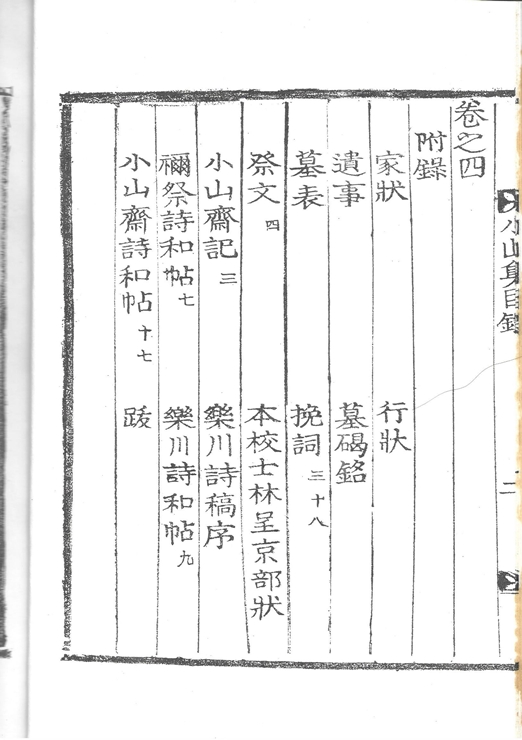 小山集目錄
二
卷之四
附錄
家狀 行狀
遺事 墓碣銘
墓表 挽詞三十八
祭文四 本校士林呈京部狀
小山齋記三 樂川詩稿序
禰祭詩和帖七 樂川詩和帖九
小山齋詩和帖十七 跋